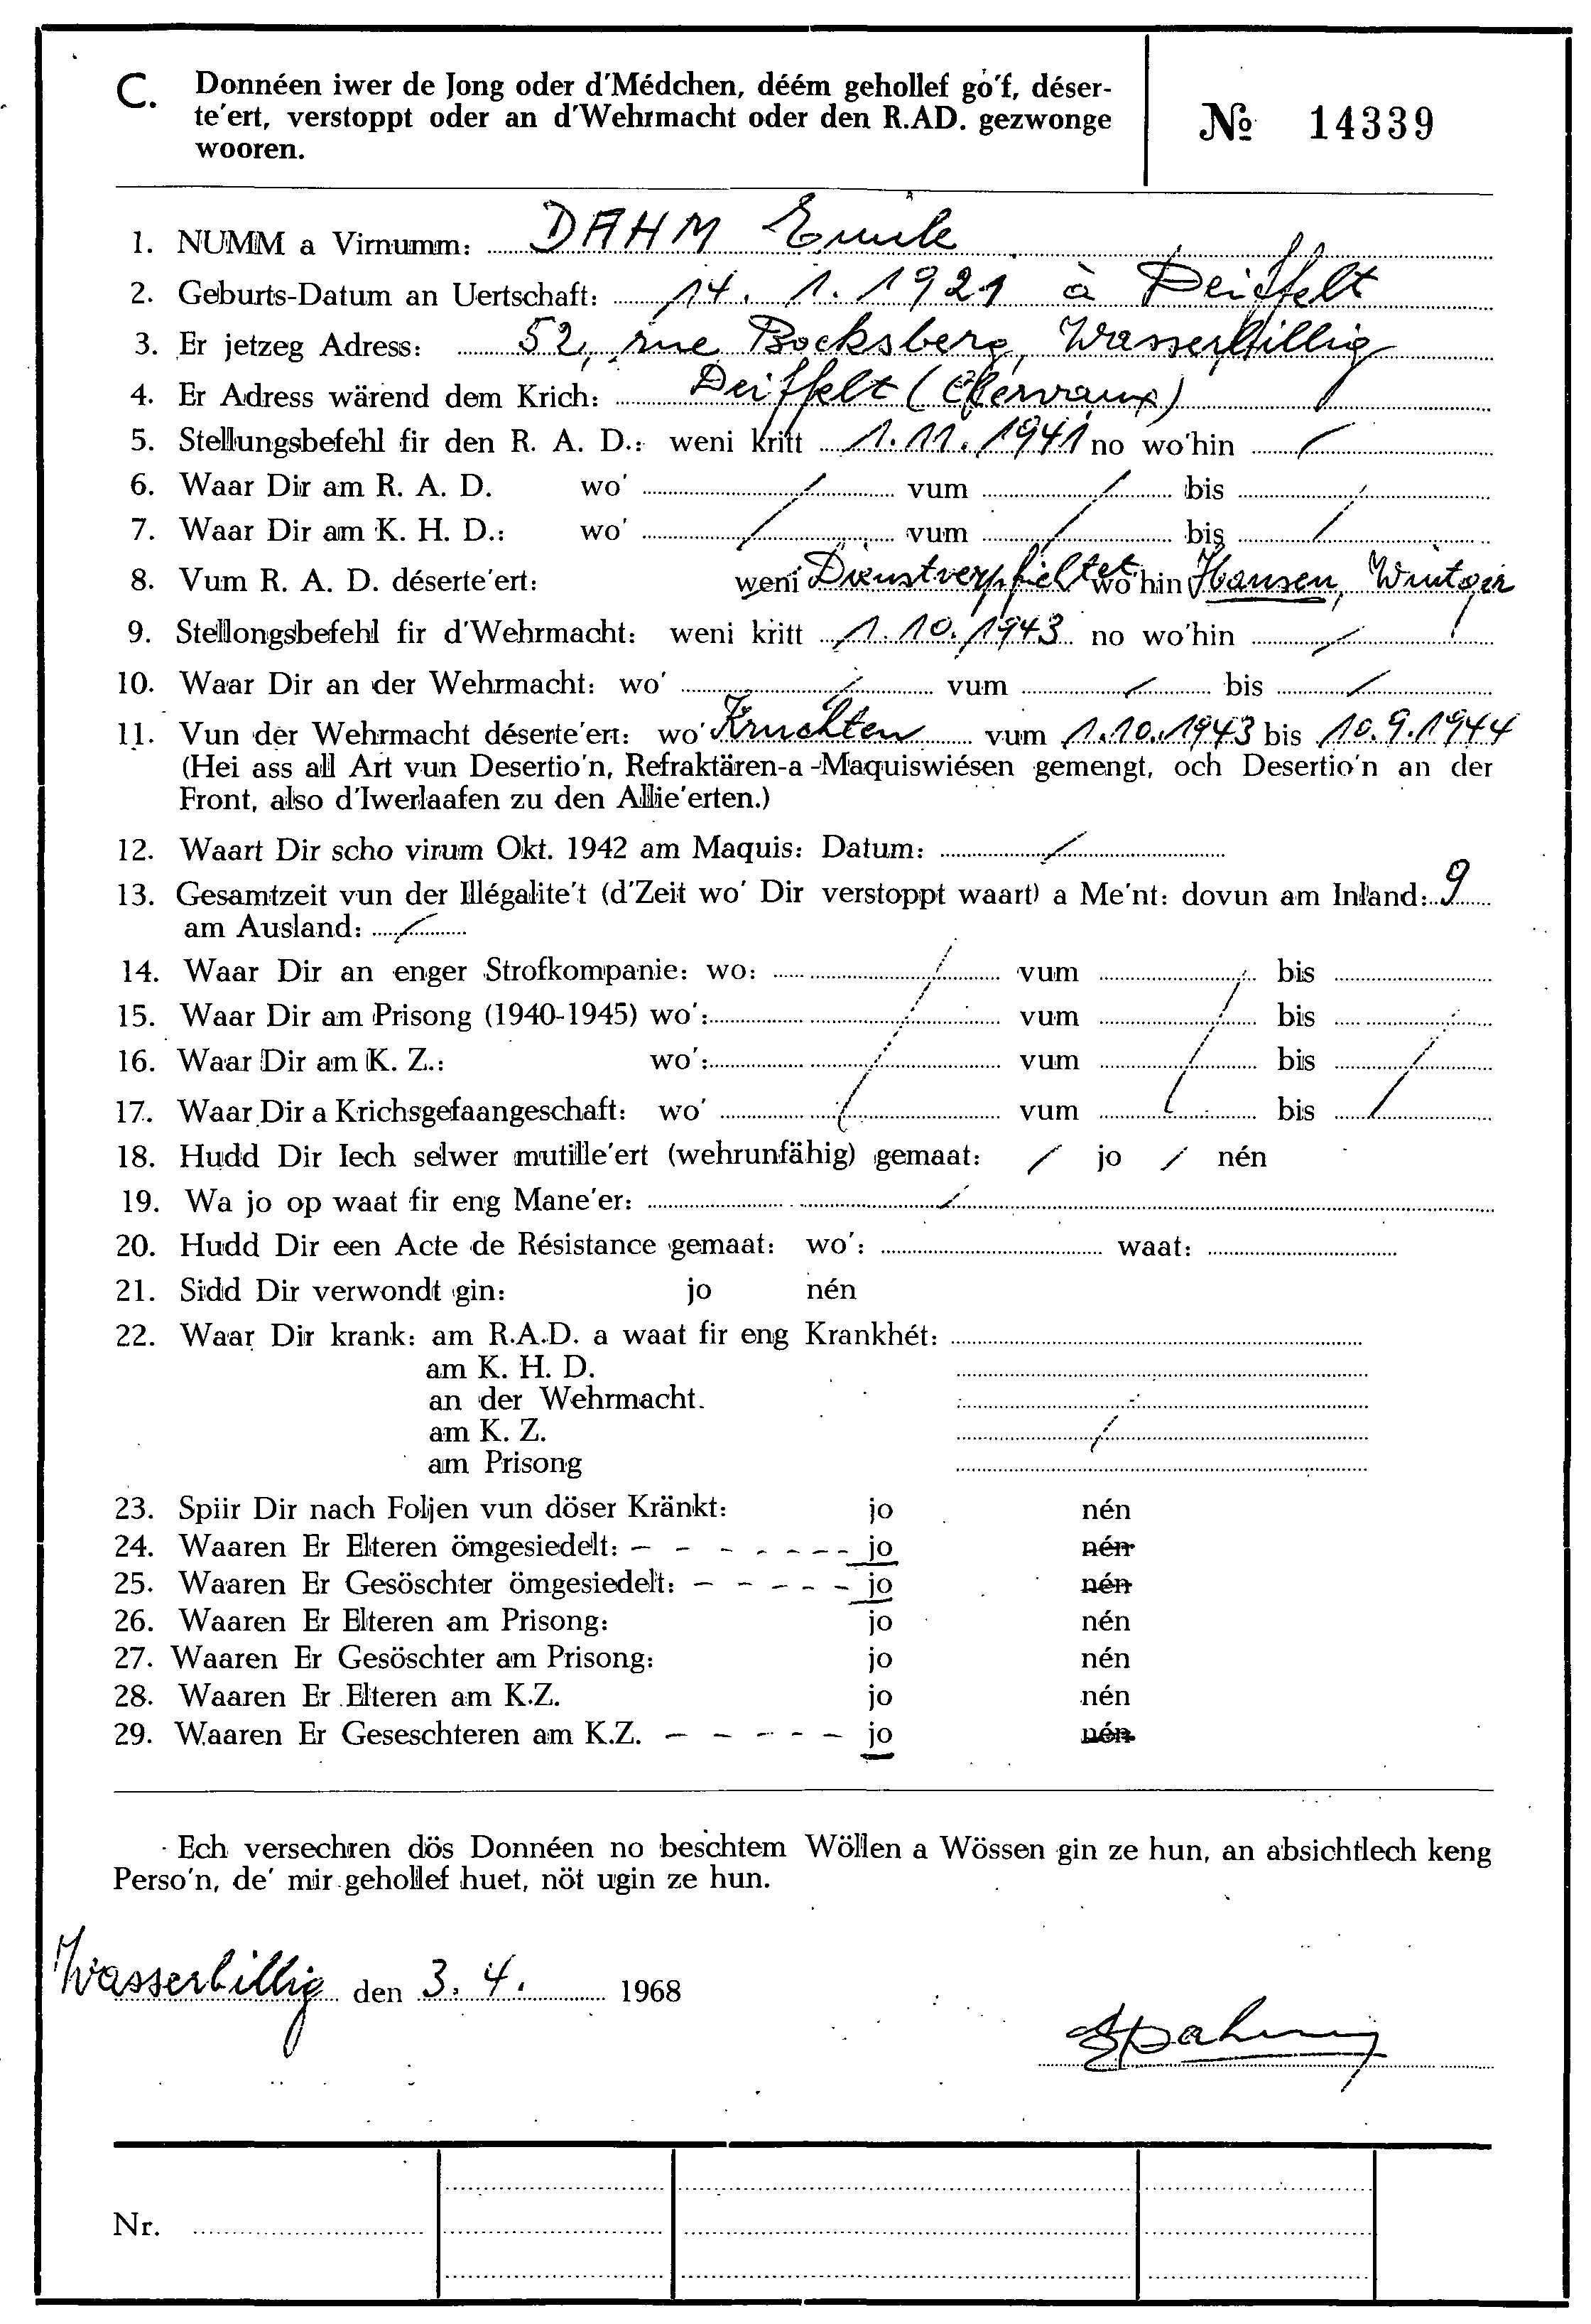 C. Donnéen iwer de Jong oder d'Médchen, déém gehollef go'f, déser-
te'ert, verstoppt oder an d'Wehrmacht oder den R.AD. gezwonge
wooren.
№ 14339
1. NUMM a Virnumm: DAHM Emile
2. Geburts-Datum an Uertschaft: 14. 1. 1921 à Deiffelt
3. Er jetzeg Adress: 52, rue Bocksberg, Wasserbillig
4. Er Adress wärend dem Krich: Deiffelt (Clervaux)
5. Stellungsbefehl fir den R. A. D.: weni kritt 1. 11. 1941 no wo'hin /
6. Waar Dir am R. A. D. wo' / vum / bis /
7. Waar Dir am K. H. D.: wo' / vum / bis /
8. Vum R. A. D. déserte'ert: weni Dienstverpflichtet wo'hin Hansen, Wintger
9. Stellongsbefehl fir d'Wehrmacht: weni kritt 1. 10. 1943 no wo'hin /
10. Waar Dir an der Wehrmacht: wo' / vum / bis /
11. Vun der Wehrmacht déserte'ert: wo' Kruchten vum 1.10.1943 bis 10.9.1944
(Hei ass all Art vun Desertio'n, Refraktären-a-Maquiswiésen gemengt, och Desertio'n an der
Front, also d'Iwerlaafen zu den Allie'erten.)
12. Waart Dir scho virum Okt. 1942 am Maquis: Datum: /
13. Gesamtzeit vun der Illégalite't (d'Zeit wo' Dir verstoppt waart) a Me'nt: dovun am Inland: 9
am Ausland: /
14. Waar Dir an enger Strofkompanie: wo: / vum / bis
15. Waar Dir am Prisong (1940-1945) wo': / vum / bis /
16. Waar Dir am K. Z.: wo': / vum / bis /
17. Waar Dir a Krichsgefaangeschaft: wo' / vum / bis /
18. Hudd Dir Iech selwer mutille'ert (wehrunfähig) gemaat: / jo / nén
19. Wa jo op waat fir eng Mane'er: /
20. Hudd Dir een Acte de Résistance gemaat: wo': waat:
21. Sidd Dir verwondt gin: jo nén
22. Waar Dir krank: am R.A.D. a waat fir eng Krankhét:
am K. H. D.
an der Wehrmacht.
am K. Z. /
am Prisong
23. Spiir Dir nach Foljen vun döser Kränkt: jo nén
24. Waaren Er Elteren ömgesiedelt: - - - - - - - jo nén
25. Waaren Er Gesöschter ömgesiedelt: - - - - - jo nén
26. Waaren Er Elteren am Prisong: jo nén
27. Waaren Er Gesöschter am Prisong: jo nén
28. Waaren Er Elteren am K.Z. jo nén
29. Waaren Er Geseschteren am K.Z. - - - - - jo nén
Ech versechren dös Donnéen no beschtem Wöllen a Wössen gin ze hun, an absichtlech keng
Perso'n, de' mir gehollef huet, nöt ugin ze hun.
Wasserbillig den 3. 4. 1968
Nr.